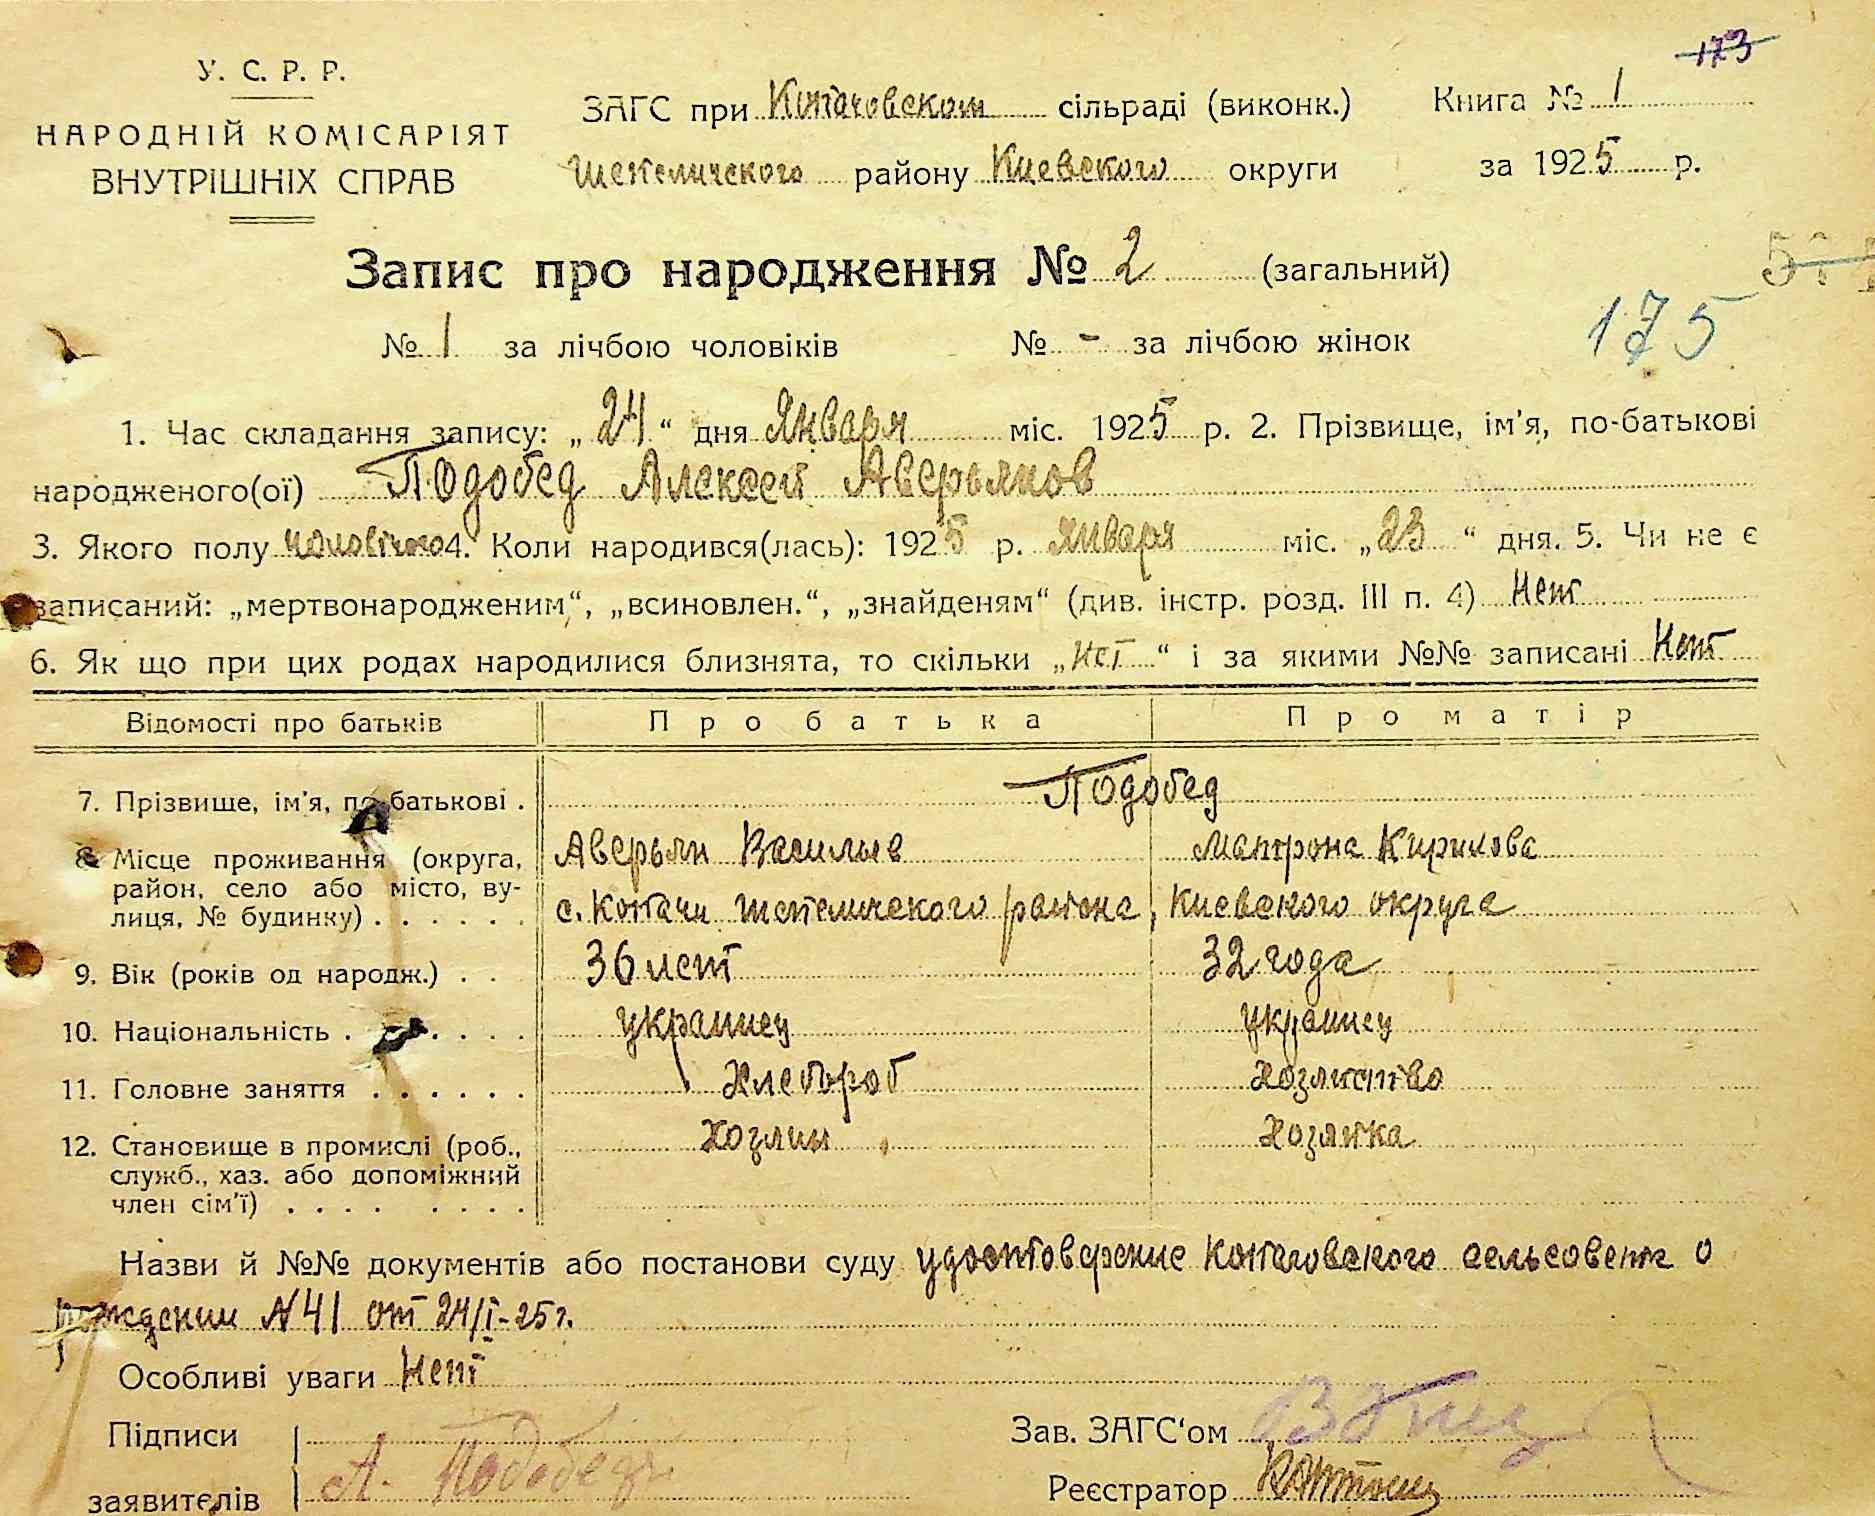 173
У. С. Р. Р.
НАРОДНІЙ КОМІСАРІЯТ
ВНУТРІШНІХ СПРАВ
ЗАГС при Копачовском сільраді (виконк.) Книга № 1
Шепеличского району Киевского округи за 1925 р.
Запис про народження № 2 (загальний)
175
№ 1 за лічбою чоловіків № - за лічбою жінок
1. Час складання запису: „24“ дня Января міс. 1925 р. 2. Прізвище, ім'я, по-батькові
народженого(ої) Подобед Алексей Аверьянов
3. Якого полу чоловічого 4. Коли народився(лась): 1925 р. января міс. „23“ дня. 5. Чи не є
записаний: „мертвонародженим“, „всиновлен.“, „знайденям“ (див. інстр. розд. III п. 4) Нет
6. Як що при цих родах народилися близнята, то скільки „нет“ і за якими №№ записані Нет
Відомості про батьків Про батька Про матір
7. Прізвище, ім'я, по батькові . Подобед
Аверьян Васильев Матрона Кирилова
8. Місце проживання (округа,
район, село або місто, ву-
лиця, № будинку) . . . . . . с. Копачи Шепеличского района, Киевского округа
9. Вік (років од народж.) . . 36 лет 32 года
10. Національність . . . . . . украинец украинец
11. Головне заняття . . . . . . Хлебороб Хозяйство
12. Становище в промислі (роб., Хозяин Хозяйка
служб., хаз. або допоміжний
член сім'ї) . . . . . . . .
Назви й №№ документів або постанови суду удостоверение Копачовского сельсовета о
рождении N 41 от 24/I-25 г.
Особливі уваги Нет
Підписи
заявителів А. Подобед
Зав. ЗАГС'ом
Реєстратор